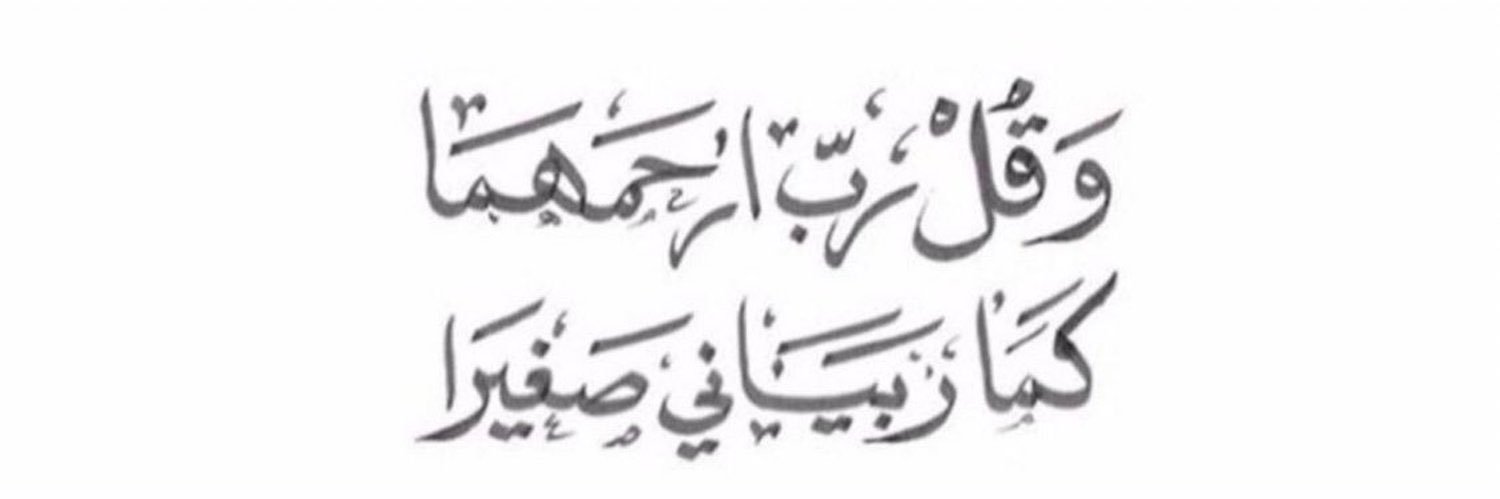 وَقُلْ رَبِّ ارْحَمْهَمَا
كَمَا رَبَّيَانِي صَغِيرَا